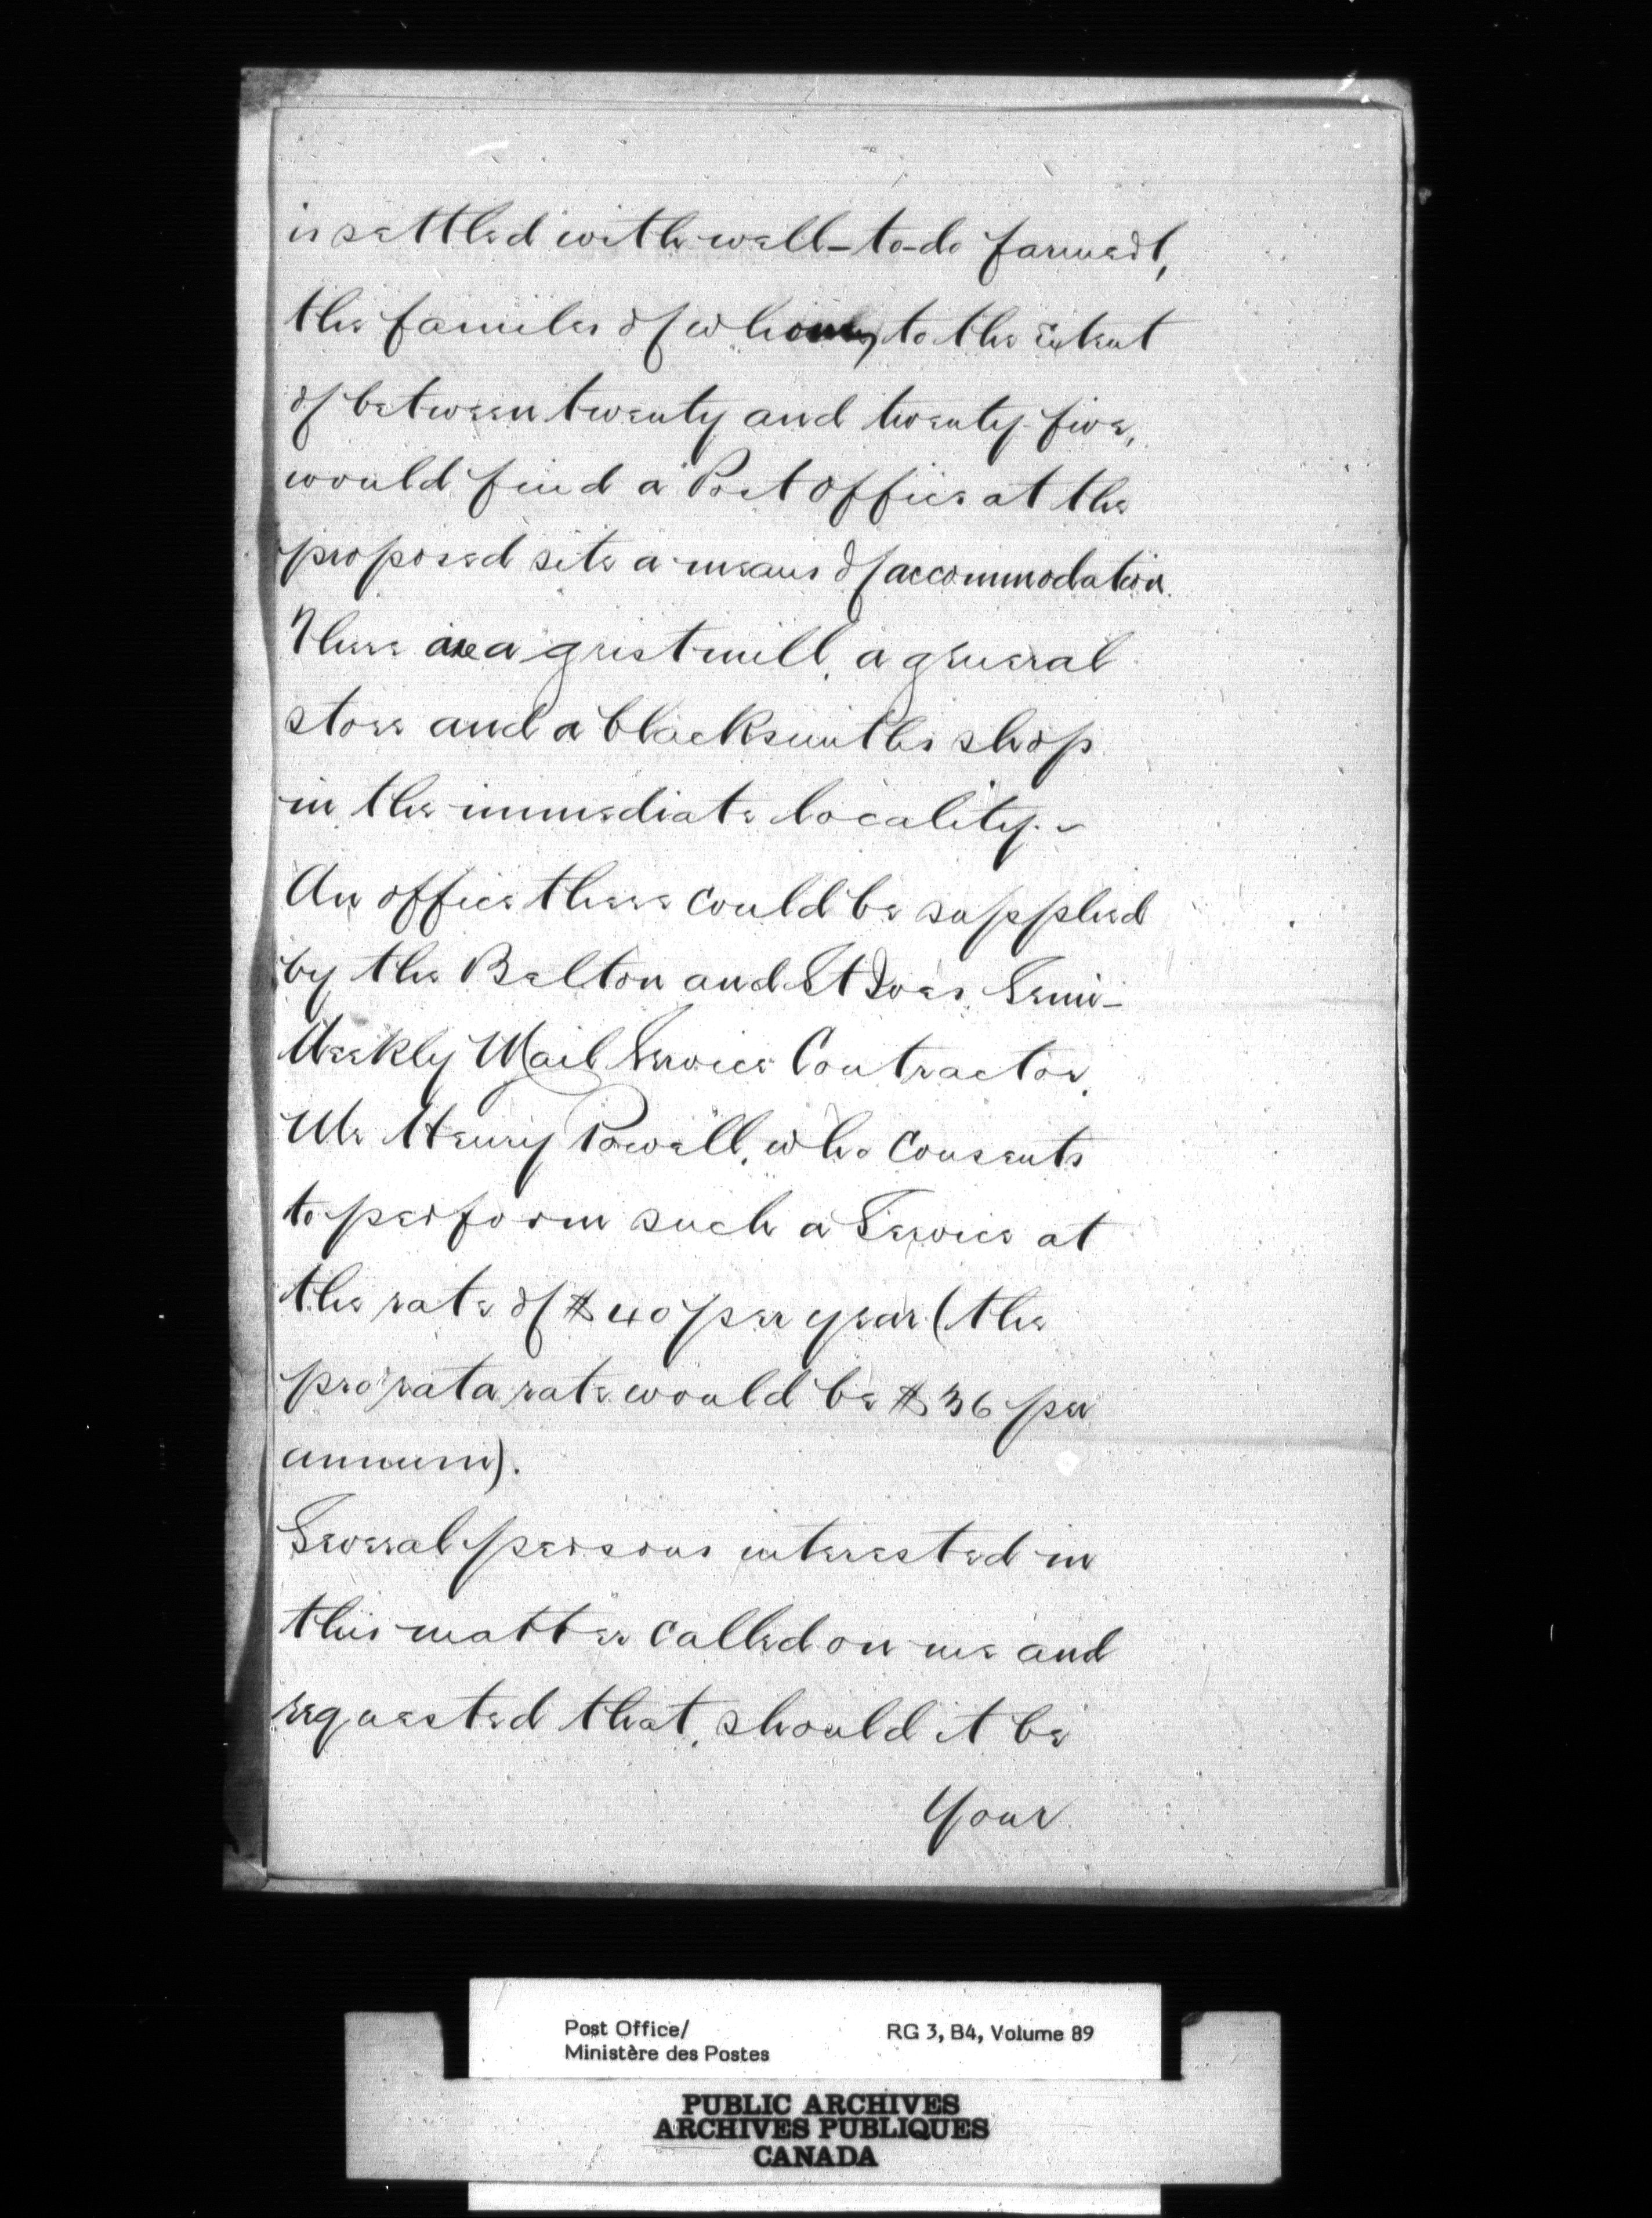 is settled with well-to-do farmers,
the familes of whom, to the extent
of between twenty and twenty-five,
would find a Post Office at the
proposed site a means of accommodation.
There are a grist mill, a general
store and a blacksmiths shop
in the immediate locality. -
An office there could be supplied
by the Belton and St Ives Semi-
Weekly Mail Service Contractor,
Mr Henry Powell, who consents
to perform such a Service at
the rate of $40 per year (the
pro rata rate would be $36 per
annum).
Several persons interested in
this matter called on me and
requested that, should it be
Your
Post Office/
Ministère des Postes
RG 3, B4, Volume 89
PUBLIC ARCHIVES
ARCHIVES PUBLIQUES
CANADA